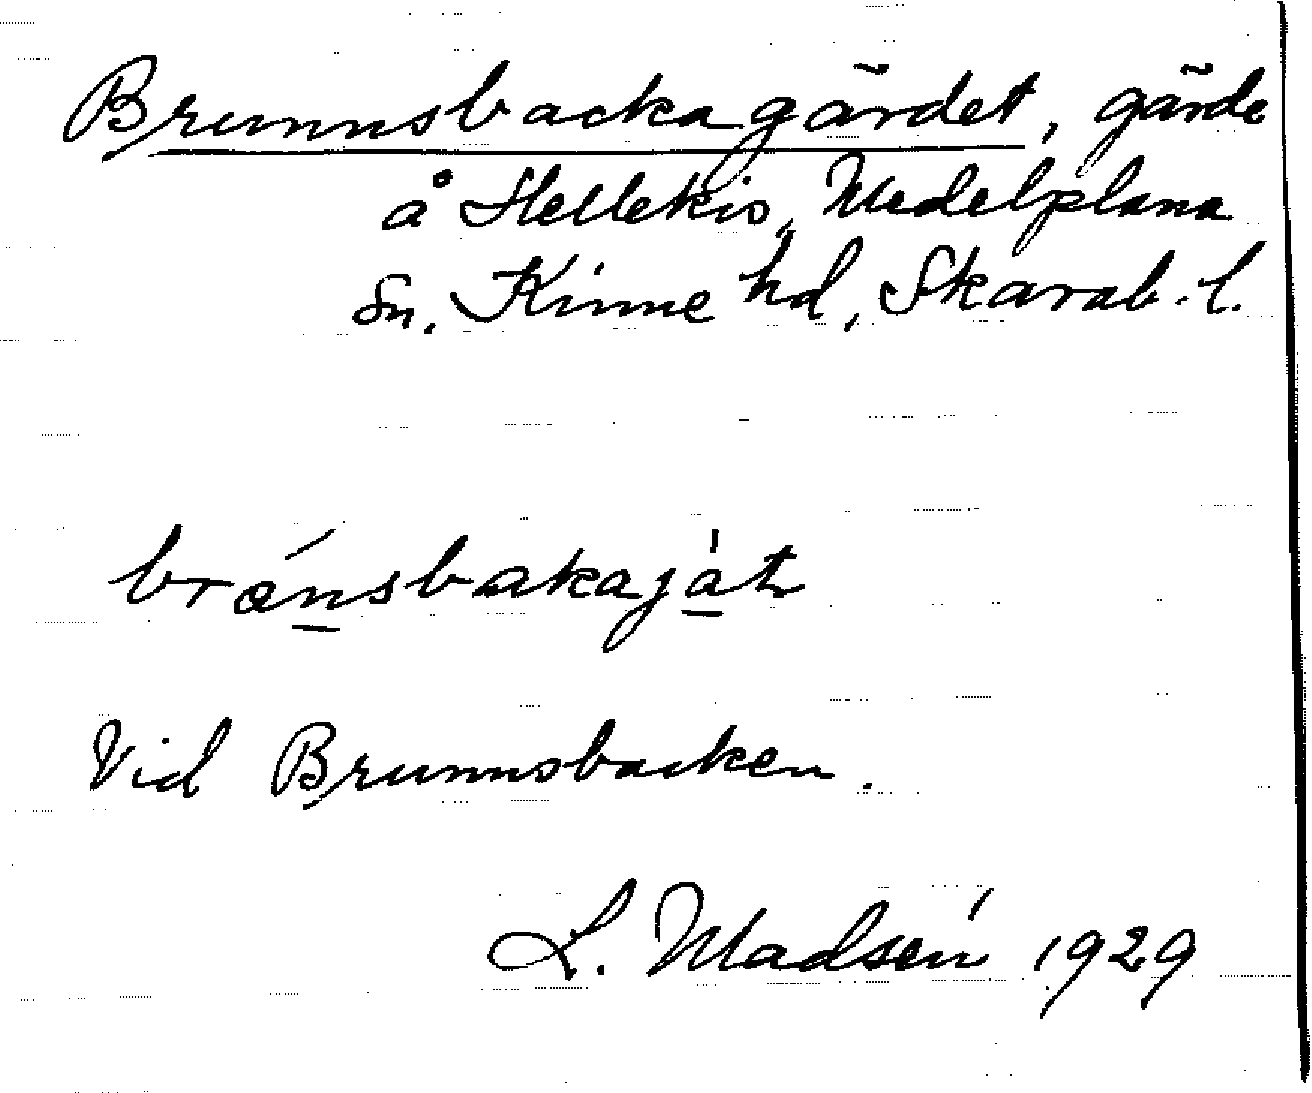 Brunnsbackagärdet, gärde
å Hellekis, Medelplana
sn. Kinne hd, Skarab. l.
Vid Brunnsbacken.
L. Madsén 1929